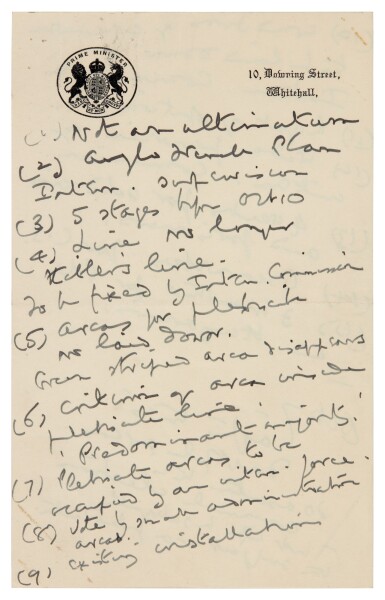 PRIME MINISTER
10, Downing Street,
Whitehall,
(1) Not an ultimatum
(2) Anglo French Plan
Intern. supervision
(3) 5 stages Oct 10
(4) Line no longer
Hitler's line.
To be fixed by Intern. Commission
(5) areas for plebiscite
no laid down.
Green striped area disappears
(6) criterion of area inside
plebiscite line
'Predominant majority'
(7) Plebiscite areas to be
occupied by an intern. force.
(8) Vote by small administrative
areas.
(9) existing installations